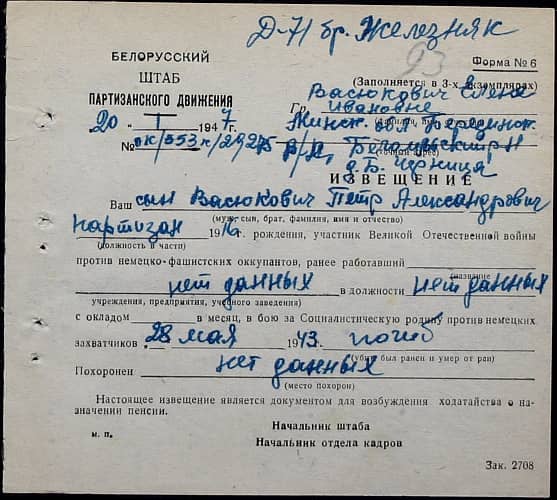 Д-71 бр. Железняк
93
БЕЛОРУССКИЙ
ШТАБ
ПАРТИЗАНСКОГО ДВИЖЕНИЯ
Форма № 6
(Заполняется в 3-х экземплярах)
Гр. Васюкович Елене
Ивановне
20 " I 1947г.
Минск. обл
№ ок/553к/2925
д. Б. Черница
ИЗВЕЩЕНИЕ
Ваш сын Васюкович Петр Александрович
(муж, сын, брат, фамилия, имя и отчество)
партизан 1916 г. рождения, участник Великой Отечественной войны
(должность в части)
против немецко-фашистских оккупантов, ранее работавший
(название
нет данных в должности нет данных
учреждения, предприятия, учебного заведения)
с окладом в месяц, в бою за Социалистическую родину против немецких
захватчиков 28 мая 1943. погиб
(убит, был ранен и умер от ран)
Похоронен нет данных
(место похорон)
Настоящее извещение является документом для возбуждения ходатайства о на-
значении пенсии.
Начальник штаба
м. п.
Начальник отдела кадров
Зак. 2708